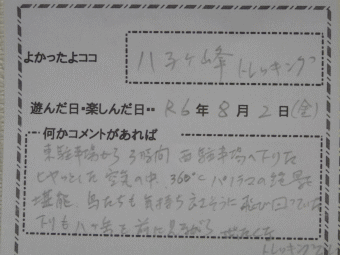 よかったよココ 八子ヶ峰 トレッキング
遊んだ日・楽しんだ日・・ R6年 8月 2日(金)
何かコメントがあれば
東駐車場から3時間 西駐車場へ下りた
空気の中、360°に パノラマの絶景を
堪能、鳥たちも気持ちよさそうに飛び回っていた
下りも八ヶ岳を前に見ながら
トレッキング